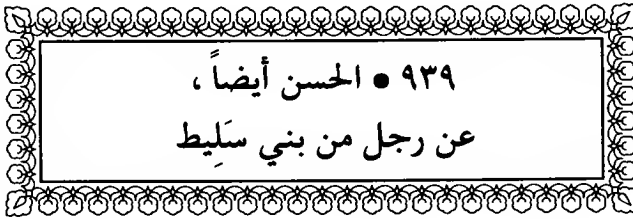 ٩٣٩ • الحسن أيضاً ،
عن رجل من بني سَلِيط